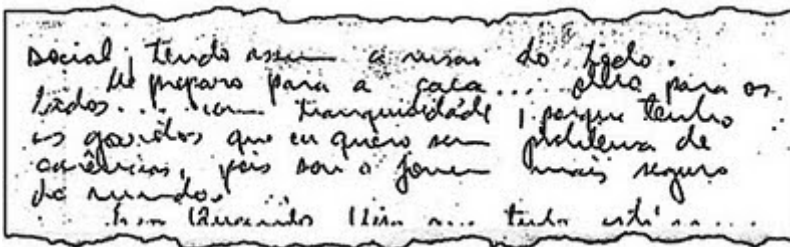 social, tendo assim a visão do todo.
Me preparo para a caça... olho para os
lados... com tranquilidade, porque tenho
os que eu quero sem problema de
carências, pois sou o jovem mais seguro
do mundo.
tudo